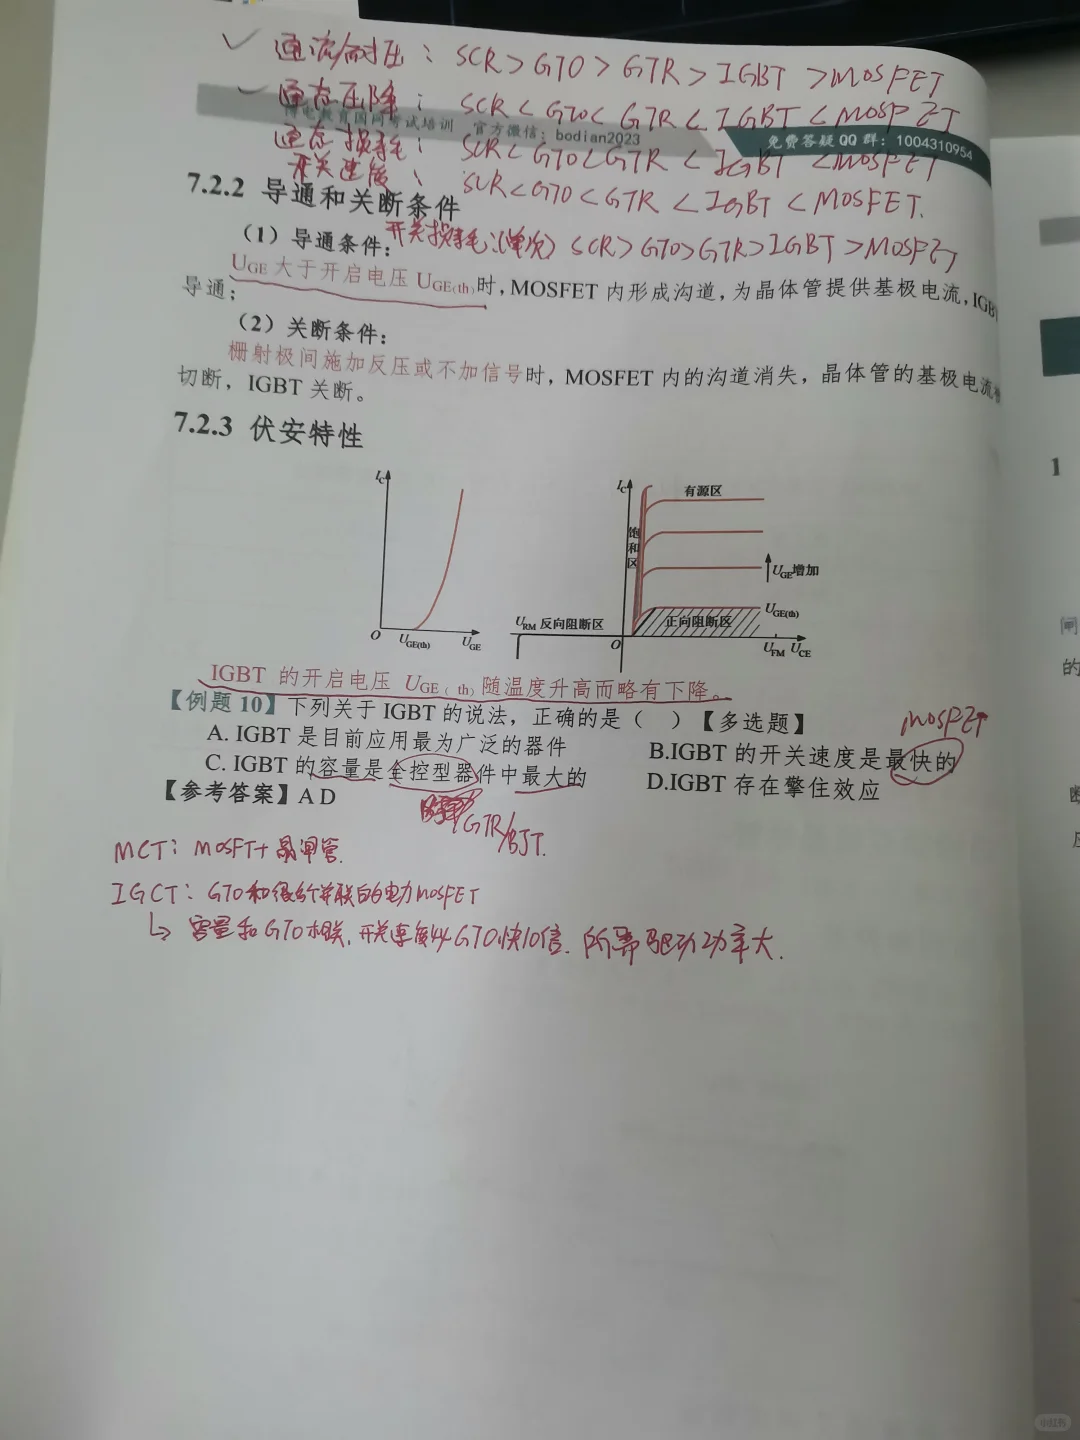 通流耐压：SCR > GTO > GTR > IGBT > MOSFET
通态压降：SCR < GTO < GTR < IGBT < MOSFET
博电教育国网考试培训 官方微信：bodian2023 免费答疑QQ群：1004310954
通态损耗：SCR < GTO < GTR < IGBT < MOSFET
开关速度：SCR < GTO < GTR < IGBT < MOSFET.
7.2.2 导通和关断条件
开关损耗：(单次) SCR > GTO > GTR > IGBT > MOSFET
（1）导通条件：
UGE 大于开启电压 UGE(th)时，MOSFET 内形成沟道，为晶体管提供基极电流，IGBT
导通；
（2）关断条件：
栅射极间施加反压或不加信号时，MOSFET 内的沟道消失，晶体管的基极电流
切断，IGBT 关断。
7.2.3 伏安特性
IC
O
UGE(th)
UGE
IC
有源区
饱和区
UGE增加
UGE(th)
URM 反向阻断区
正向阻断区
O
UFM UCE
IGBT 的开启电压 UGE（th）随温度升高而略有下降。
【例题 10】下列关于 IGBT 的说法，正确的是（ ）【多选题】
MOSFET
A. IGBT 是目前应用最为广泛的器件
B.IGBT 的开关速度是最快的
C. IGBT 的容量是全控型器件中最大的
D.IGBT 存在擎住效应
【参考答案】A D
GTR/BJT.
MCT：MOSFT+晶闸管.
IGCT：GTO和很多个并联的电力MOSFET
↳ 容量和GTO相联，开关速度比GTO快10倍. 所需驱动功率大.
1
闸
的
小红书